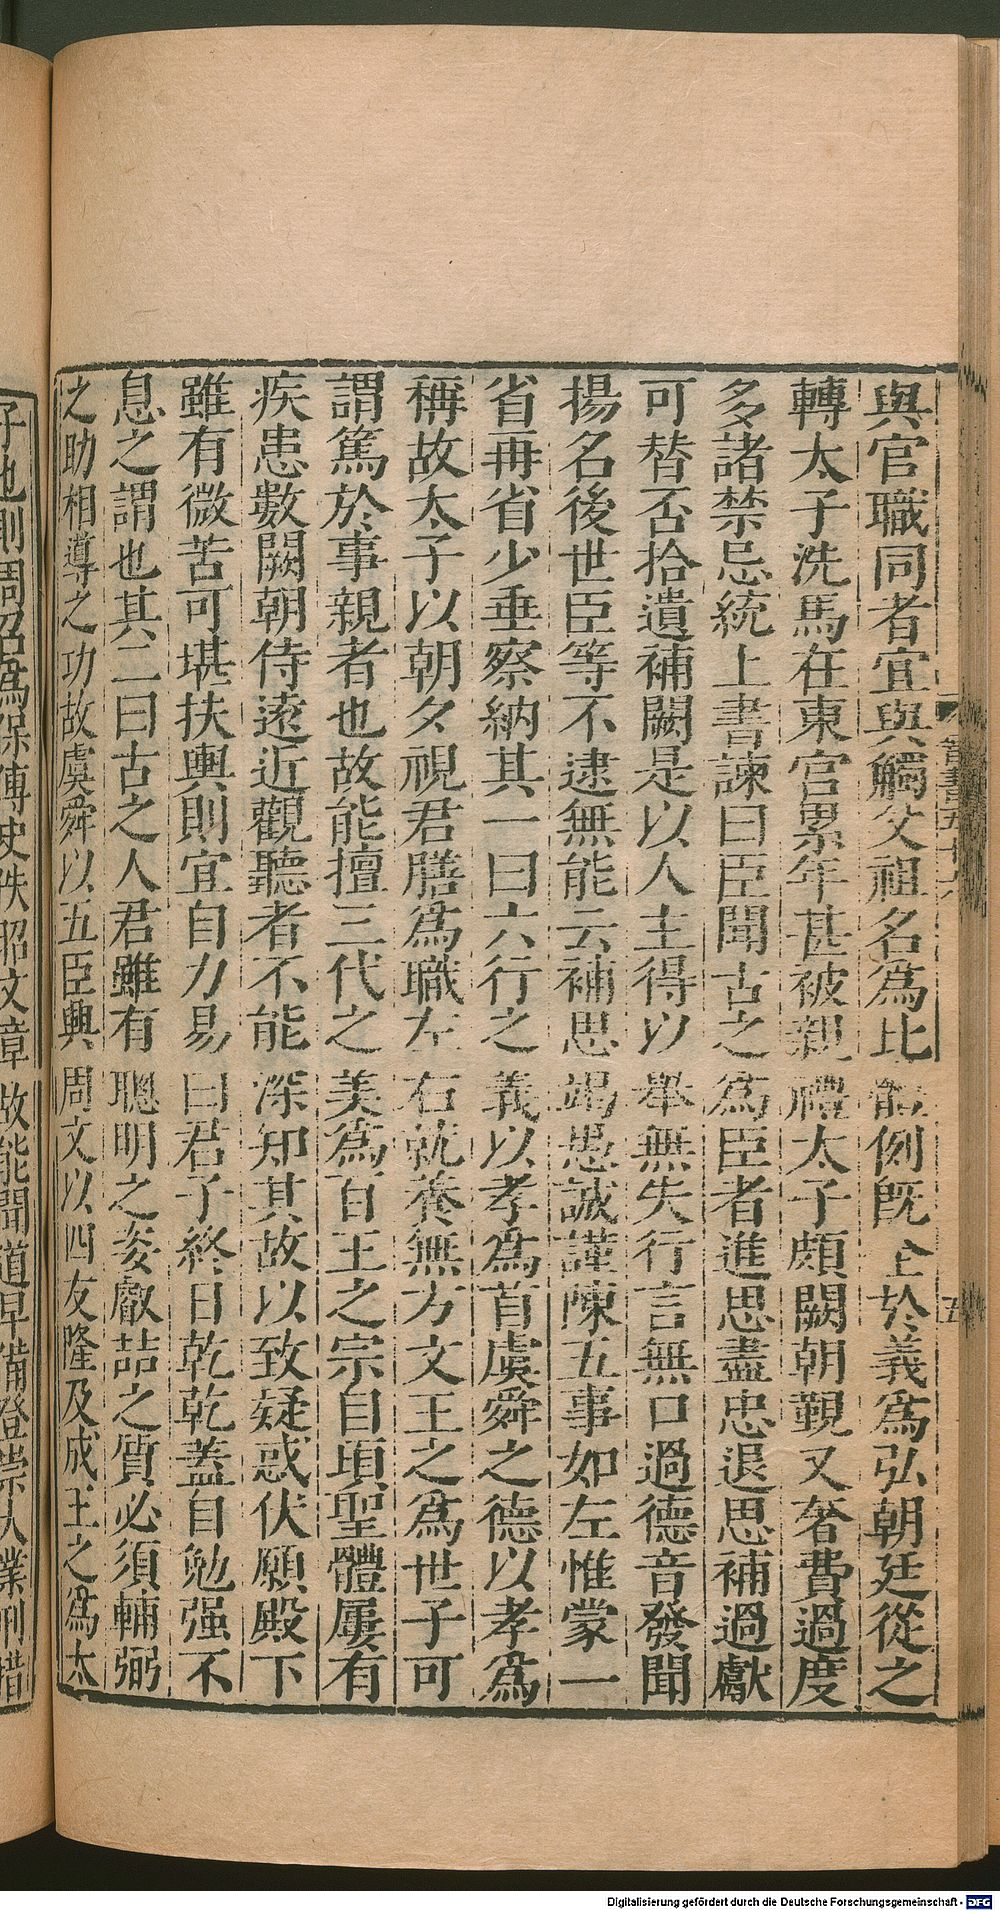 與官職同者宜與觸父祖名為比體例既全於義為弘朝廷從之
轉太子洗馬在東宮累年甚被親禮太子頗闕朝覲又奢費過度
多諸禁忌統上書諫曰臣聞古之為臣者進思盡忠退思補過獻
可替否拾遺補闕是以人主得以舉無失行言無口過德音發聞
揚名後世臣等不逮無能云補思竭愚誠謹陳五事如左惟蒙一
省再省少垂察納其一曰六行之義以孝為首虞舜之德以孝為
稱故太子以朝夕視君膳為職左右就養無方文王之為世子可
謂篤於事親者也故能擅三代之美為百王之宗自頃聖體屢有
疾患數闕朝侍遠近觀聽者不能深知其故以致疑惑伏願殿下
雖有微苦可堪扶輿則宜自力易曰君子終日乾乾蓋自勉强不
息之謂也其二曰古之人君雖有聰明之姿叡喆之質必須輔弼
之助相導之功故虞舜以五臣興周文以四友隆及成王之為太
子也則周召為保傅史佚昭文章故能聞道早備登崇大業刑措
晉書五十六
五
Digitalisierung gefördert durch die Deutsche Forschungsgemeinschaft - DFG